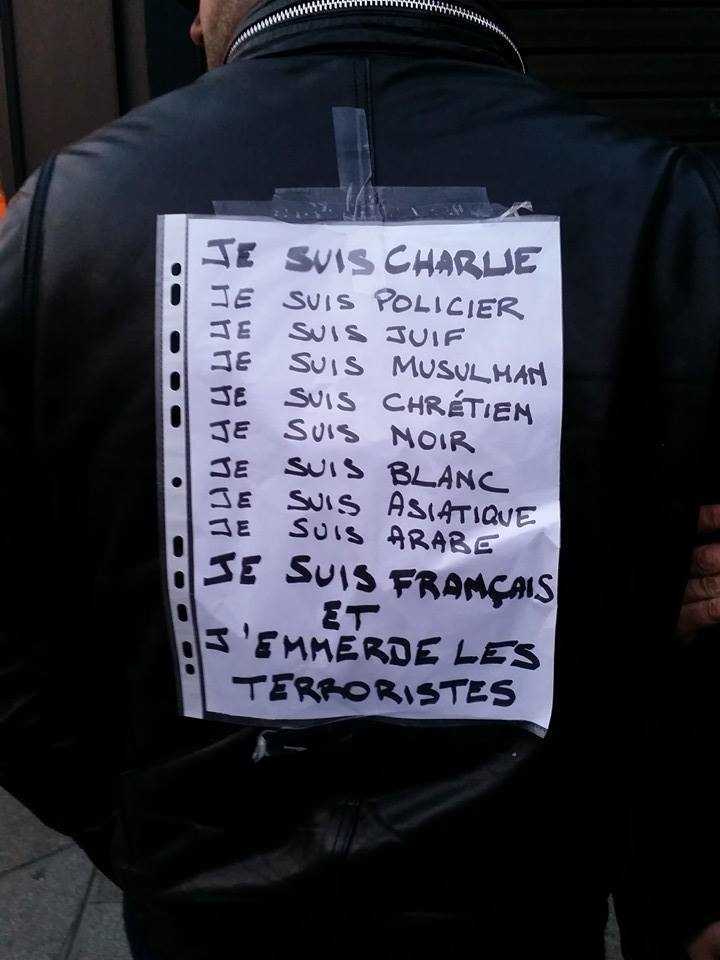 JE SUIS CHARLIE
JE SUIS POLICIER
JE SUIS JUIF
JE SUIS MUSULMAN
JE SUIS CHRÉTIEN
JE SUIS NOIR
JE SUIS BLANC
JE SUIS ASIATIQUE
JE SUIS ARABE
JE SUIS FRANÇAIS
ET
J'EMMERDE LES
TERRORISTES